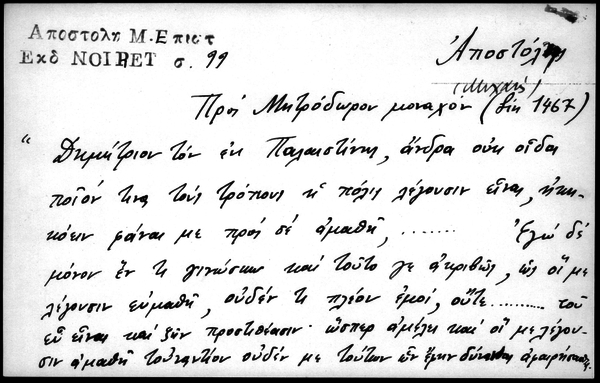 Αποστολη Μ. Επιστ
Εκδ NOIRET σ. 99
Ἀποστόλης
(Μιχαήλ)
Πρὸς Μητρόδωρον μοναχόν (fin 1467)
" Δημήτριον τὸν ἐκ Παλαιστίνης, ἄνδρα οὐκ οἶδα
ποῖόν τινα τοὺς τρόπους ἢ πόλις λέγουσιν εἶναι, ἠκη-
κόειν φάναι με πρός σέ ἀμαθῆ, ........ Ἐγώ δέ
μόνον ἕν τι γινώσκω καὶ τοῦτο γε ἀκριβῶς, ὡς οἵ με
λέγουσιν εὐμαθῆ, οὐδέν τι πλέον ἐμοί, οὔτε .......... τοῦ
εὖ εἶναι καὶ ζῆν προστιθέασιν· ὥσπερ ἀμέλει καὶ οἵ με λέγου-
σιν ἀμαθῆ τοὐναντίον οὐδέν με τούτων ὧν ἔχειν δύνανται